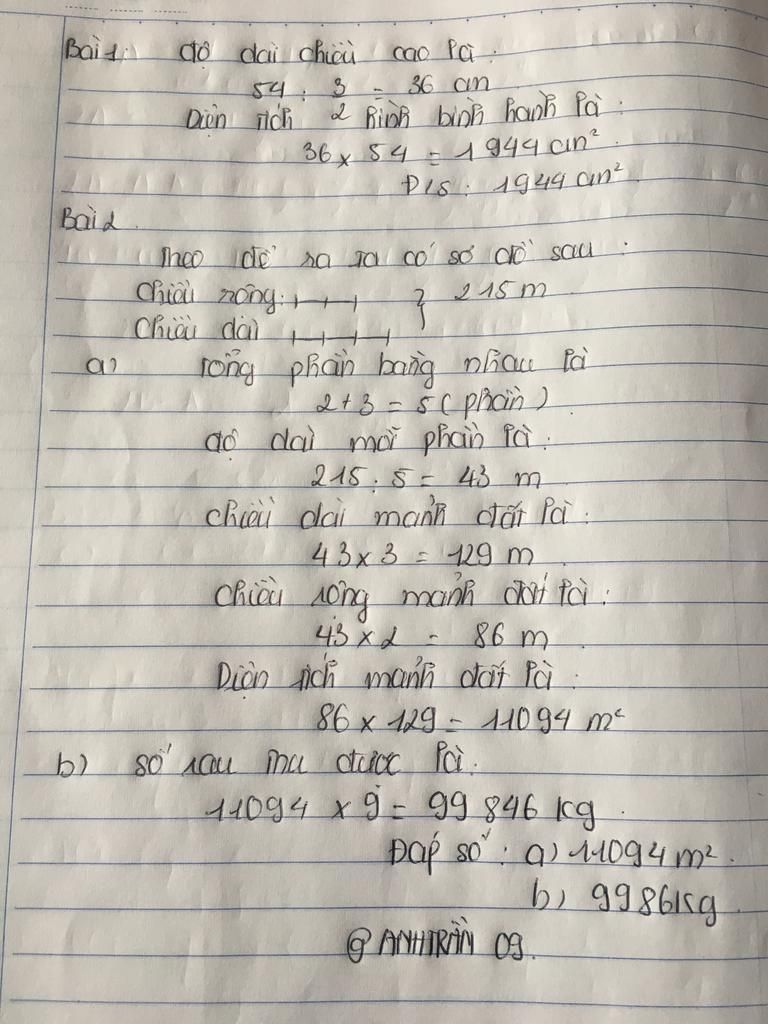 Bài 1: độ dài chiều cao là:
54 : 3/2 = 36 cm
Diện tích hình bình hành là:
36 x 54 = 1944 cm²
Đ/S: 1944 cm²
Bài 2
Theo đề ra ta có sơ đồ sau:
Chiều rộng: } 215 m
Chiều dài
a) Tổng phần bằng nhau là
2 + 3 = 5 (phần)
độ dài mỗi phần là:
215 : 5 = 43 m
chiều dài mảnh đất là:
43 x 3 = 129 m
Chiều rộng mảnh đất là:
43 x 2 = 86 m
Diện tích mảnh đất là:
86 x 129 = 11094 m²
b) số rau thu được là:
11094 x 9 = 99 846 kg
Đáp số: a) 11094 m².
b) 9986 kg
@ ANHTRẦN 09.